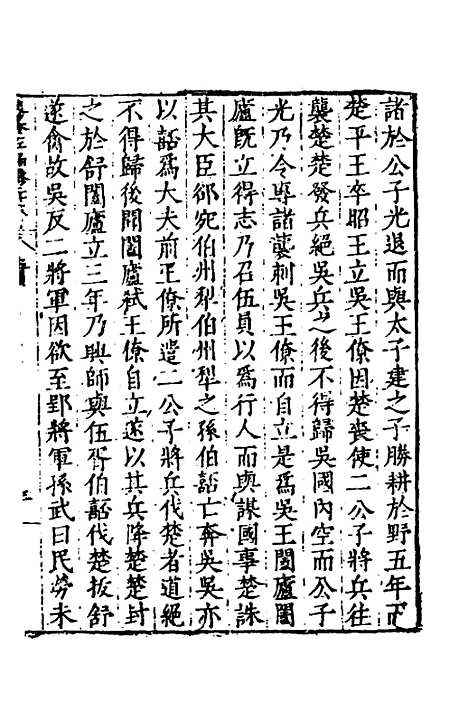 諸於公子光退而與太子建之子勝耕於野五年而
楚平王卒昭王立吳王僚因楚喪使二公子將兵往
襲楚楚發兵絕吳兵之後不得歸吳國內空而公子
光乃令專諸襲刺吳王僚而自立是爲吳王闔廬闔
廬旣立得志乃召伍員以爲行人而與謀國事楚誅
其大臣郤宛伯州犁伯州犁之孫伯嚭亡奔吳吳亦
以嚭爲大夫前王僚所遣二公子將兵伐楚者道絕
不得歸後聞闔廬弒王僚自立遂以其兵降楚楚封
之於舒闔廬立三年乃興師與伍胥伯嚭伐楚拔舒
遂禽故吳反二將軍因欲至郢將軍孫武曰民勞未